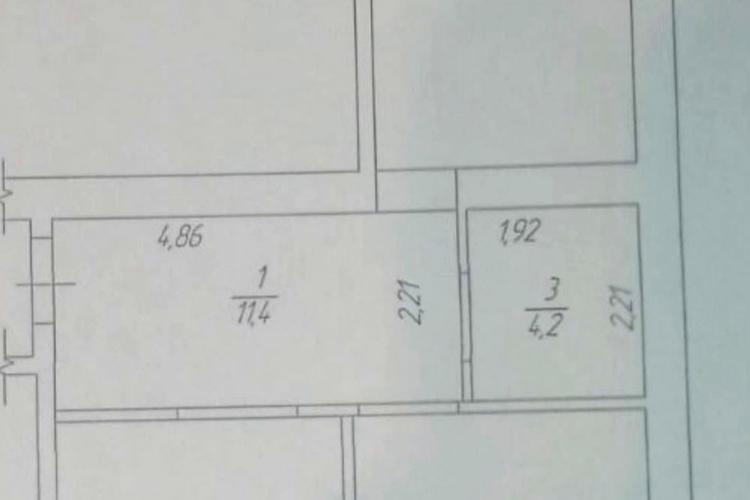 4,86
1,92
1
11,4
2,21
3
4,2
2,21